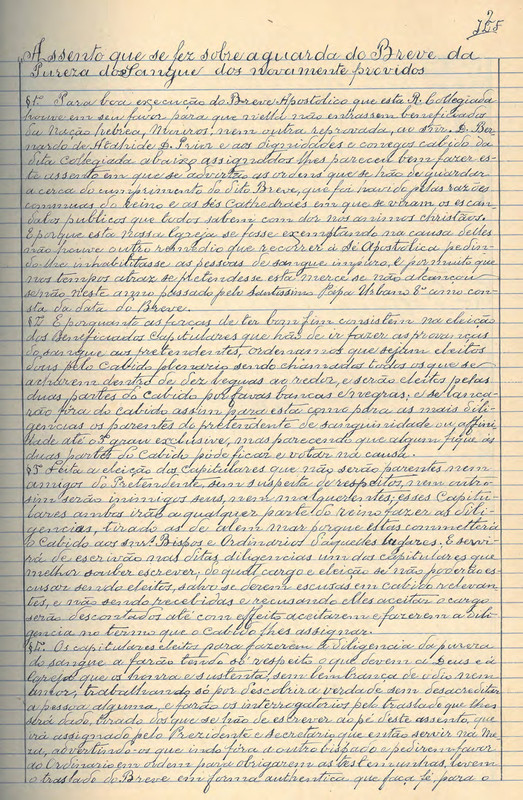 2
Assento que se fez sobre a guarda do Breve da
Pureza do Sangue dos novamente providos
§1º Para boa execução do Breve Apostolico que esta R. Collegiada
houve em seu favor para que nella não entrassem beneficiados
da Nação hebrea, Mouros, nem outra reprovada, ao snr. D. Ber-
nardo de Atahide D. Prior e aos dignidades e conegos cabido da
dita Collegiada abaixo assignados lhes pareceu bem fazer es-
te assento em que se advertão as ordens que se hão de guardar
acerca do cumprimento do dito Breve, que foi havido pelas razões
commuas do reino e as sés Cathedraes em que se viram os escan-
dalos publicos que todos sabem com dor nos animos christãos.
E porque esta nossa Igreja se fosse exemptando na causa delles
não houve outro remedio que recorrer á Sé Apostolica pedin-
do-lhe inhabilitasse as pessoas de sangue impuro, e por muito que
nos tempos atraz se pretendesse esta mercê se não alcançou
senão neste anno passado pelo Santissimo Papa Urbano 8º como con-
sta da data do Breve.
§2º E porquanto as forças de ter bom fim consistem na eleição
dos Beneficiados Capitulares que hão de ir fazer as provanças
do sangue aos pretendentes, ordenamos que sejam eleitos
dous pelo Cabido plenario sendo chamados todos os que se
acharem dentro de dez leguas ao redor, e serão eleitos pelas
duas partes do Cabido por favas brancas e negras, e se lança-
rão fóra do cabido assim para esta como para as mais dili-
gencias os parentes do pretendente de sanguinidade ou affini-
dade até o grau exclusive, mas parecendo que algum fique ás
duas partes do Cabido póde ficar e votar na causa.
§3º Feita a eleição dos Capitulares que não serão parentes nem
amigos do Pretendente, sem suspeita de respeitos, nem outro-
sim serão inimigos seus, nem malquerentes, esses Capitu-
lares ambos irão a qualquer parte do reino fazer as dili-
gencias, tirado as de alem mar porque estas commetterá
o Cabido aos snrs. Bispos e Ordinarios d'aquelles lugares. E servi-
rá de escrivão nas ditas diligencias um dos capitulares que
melhor souber escrever, do qual cargo e eleição se não poderão es-
cusar sendo eleitos, salvo se derem escusas em cabido relevan-
tes, e não sendo recebidas e recusando elles aceitar o cargo
serão descontados até com effeito aceitarem e fazerem a dili-
gencia no termo que o Cabido lhes assignar.
§4º Os capitulares eleitos para fazerem a diligencia da pureza
do sangue a farão tendo só respeito ao que devem a Deus e á
Igreja que os honra e sustenta, sem lembrança de odio nem
amor, trabalhando só por descobrir a verdade sem desacreditar
a pessoa alguma, e farão os interrogatorios pelo traslado que lhes
será dado, tirado dos que se hão de escrever ao pé deste assento, que
irá assignado pelo Prezidente e secretario que então servir na Me-
za, advertindo-os que indo fóra a outro bispado e pedirem favor
ao Ordinario em ordem para obrigarem as testemunhas, levem
o traslado do Breve em forma authentica que faça fé para o